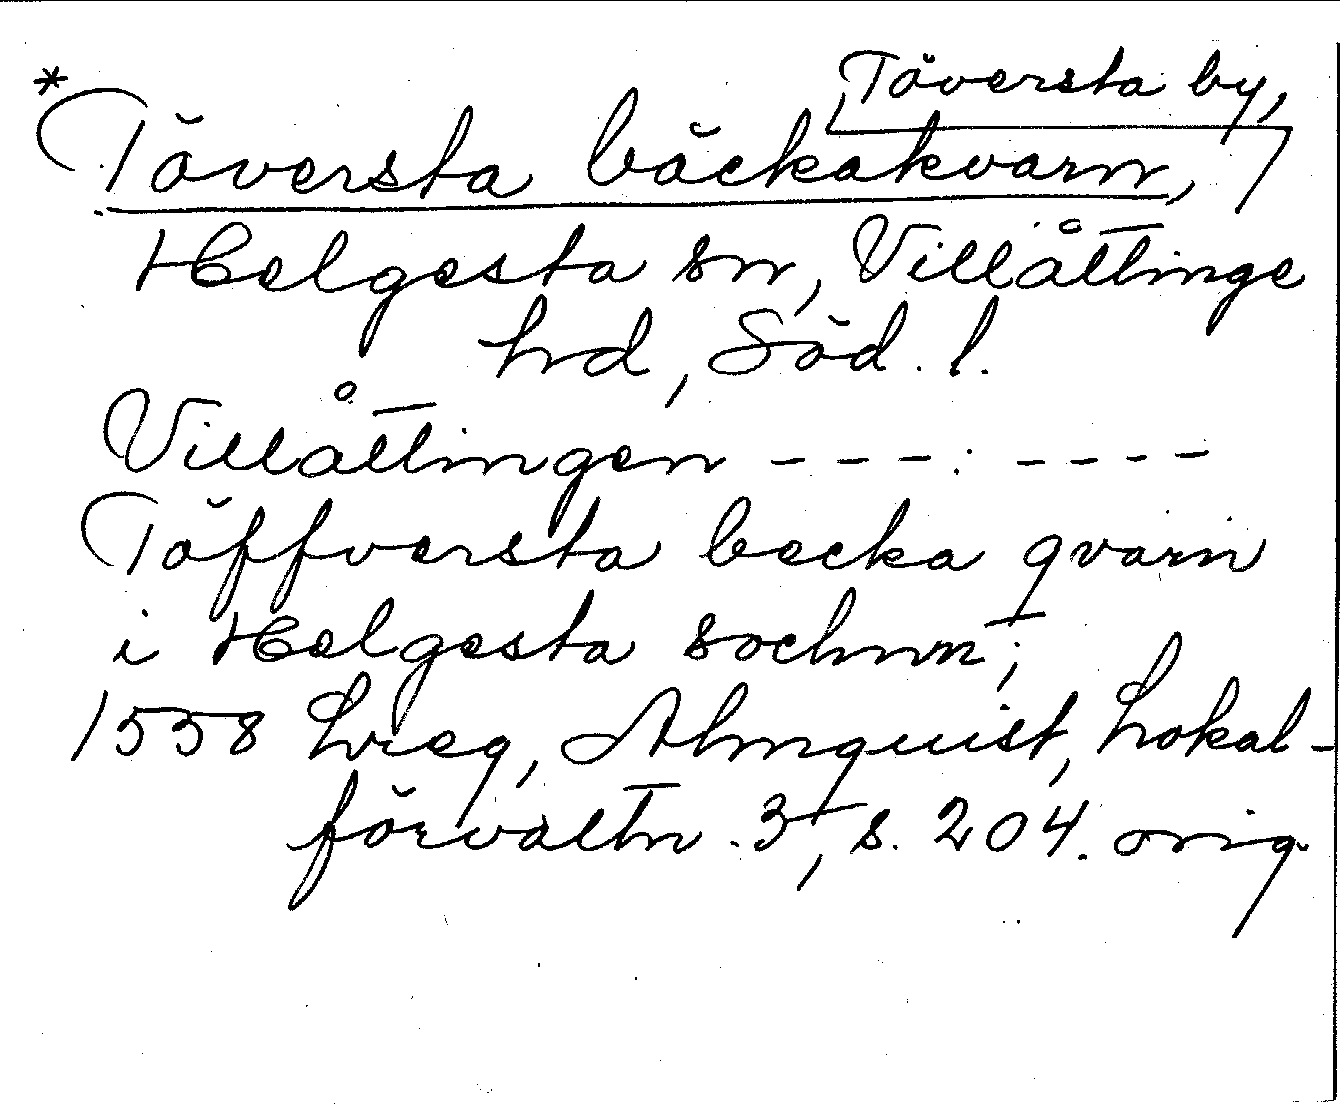 Töversta by,
* Töversta bäckakvarn,
Helgesta sn, Villåttinge
hd, Söd. l.
Villåttingen - - - . - - - -
Töffversta becka qvarn
i Helgesta sochnn;
1558 Lreg, Almquist, Lokal-
förvaltn. 3, s. 204. orig.